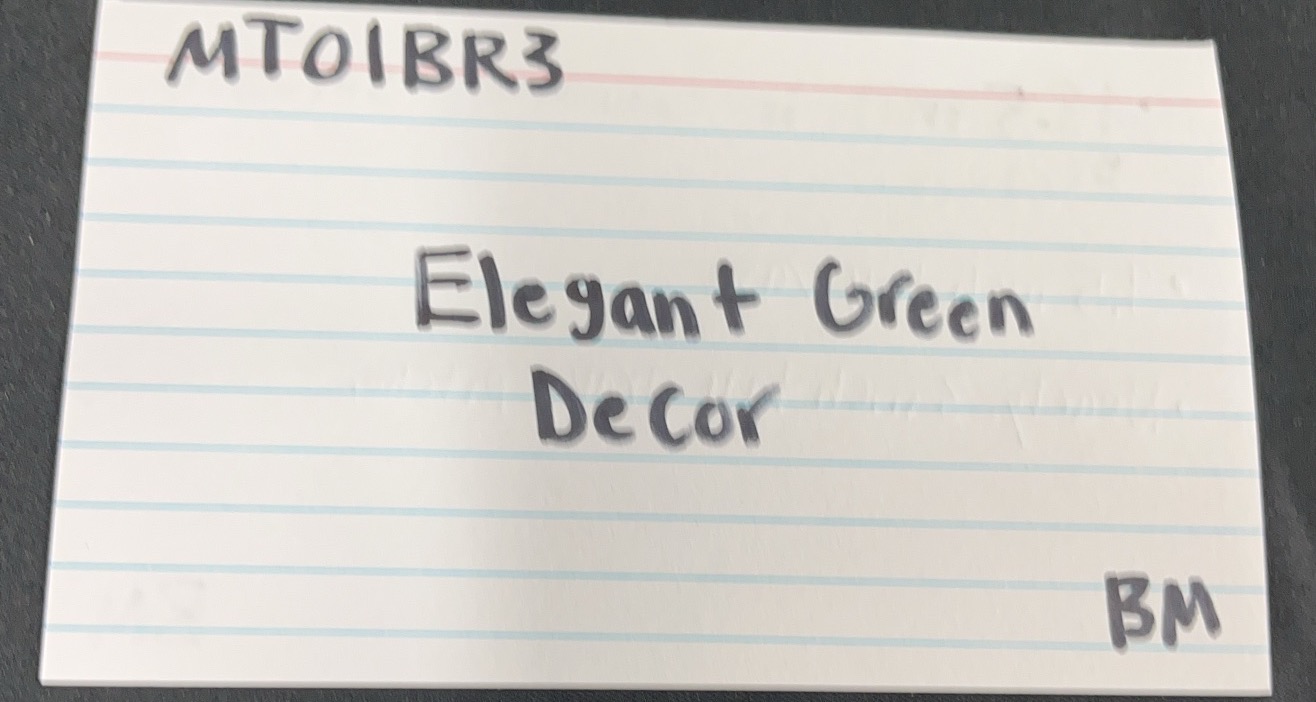 MT01BR3
Elegant Green
Decor
BM